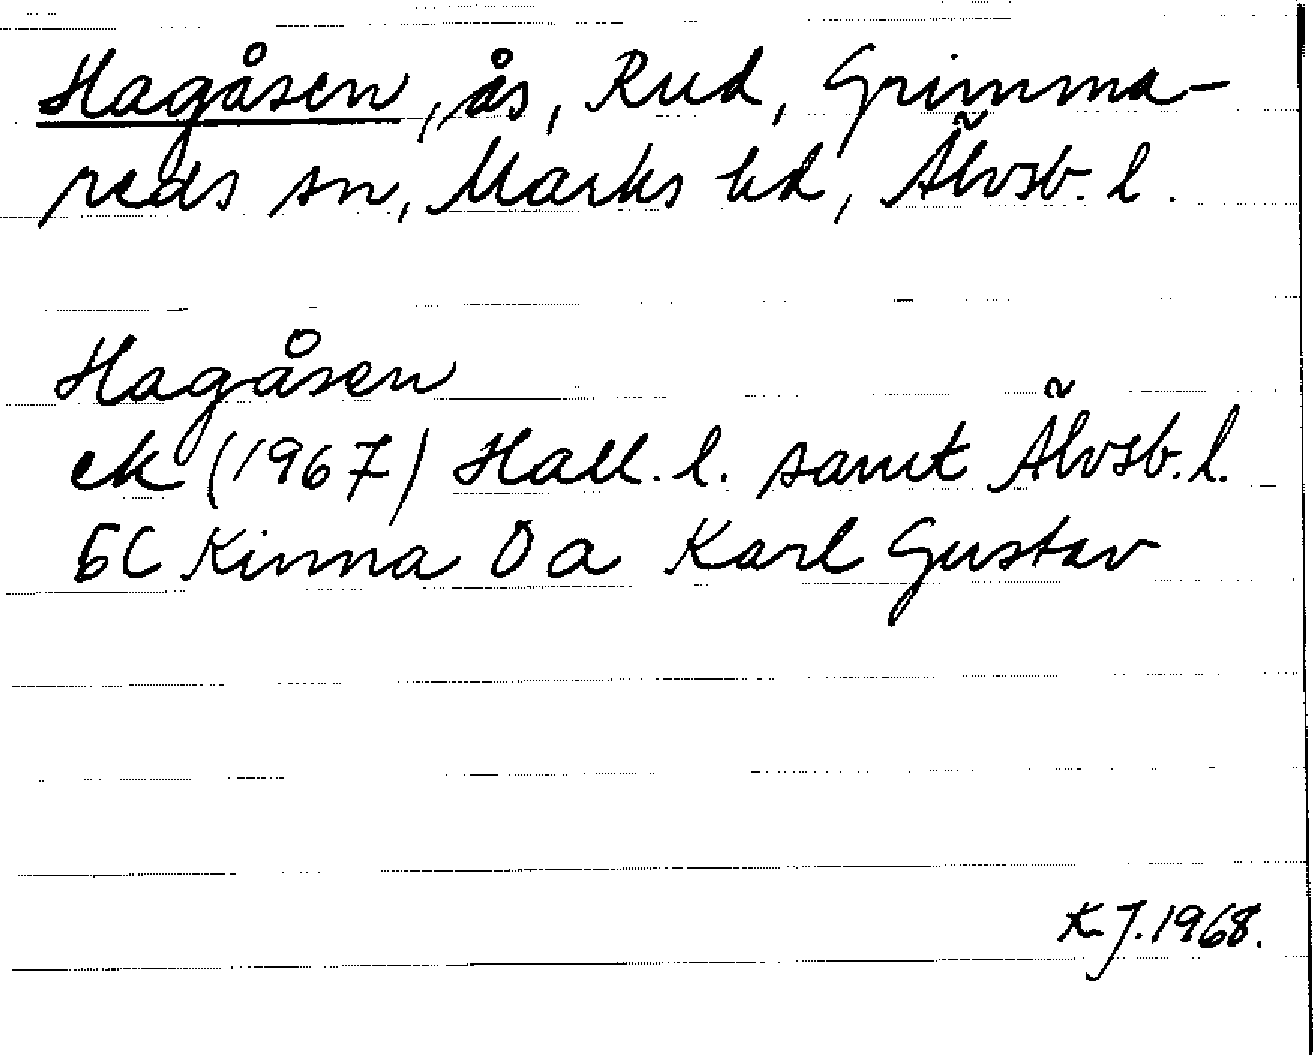 Hagåsen, ås, Rud, Grimma-
reds sn, Marks hd, Älvsb. l.
Hagåsen
ek (1967) Hall. l. samt Älvsb. l.
6C Kinna 0 a Karl Gustav
K J. 1968.